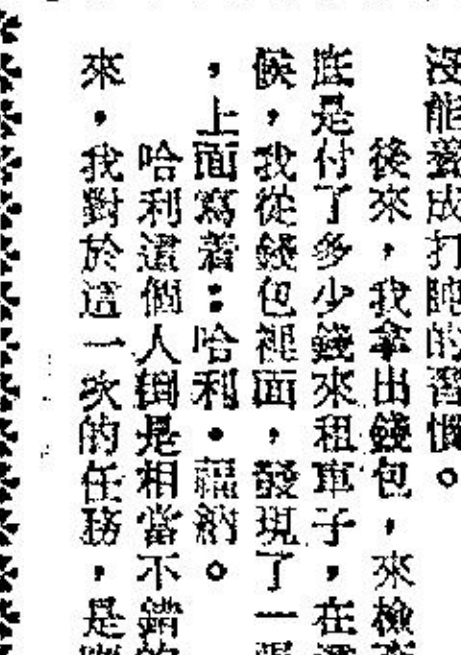 沒能養成打盹的習慣。
後來，我拿出錢包，來檢
底是付了多少錢來租車子，在這
候，我從錢包裡面，發現了一張
，上面寫着：哈利・福納。
哈利這個人倒是相當不錯的
來，我對於這一次的任務，是